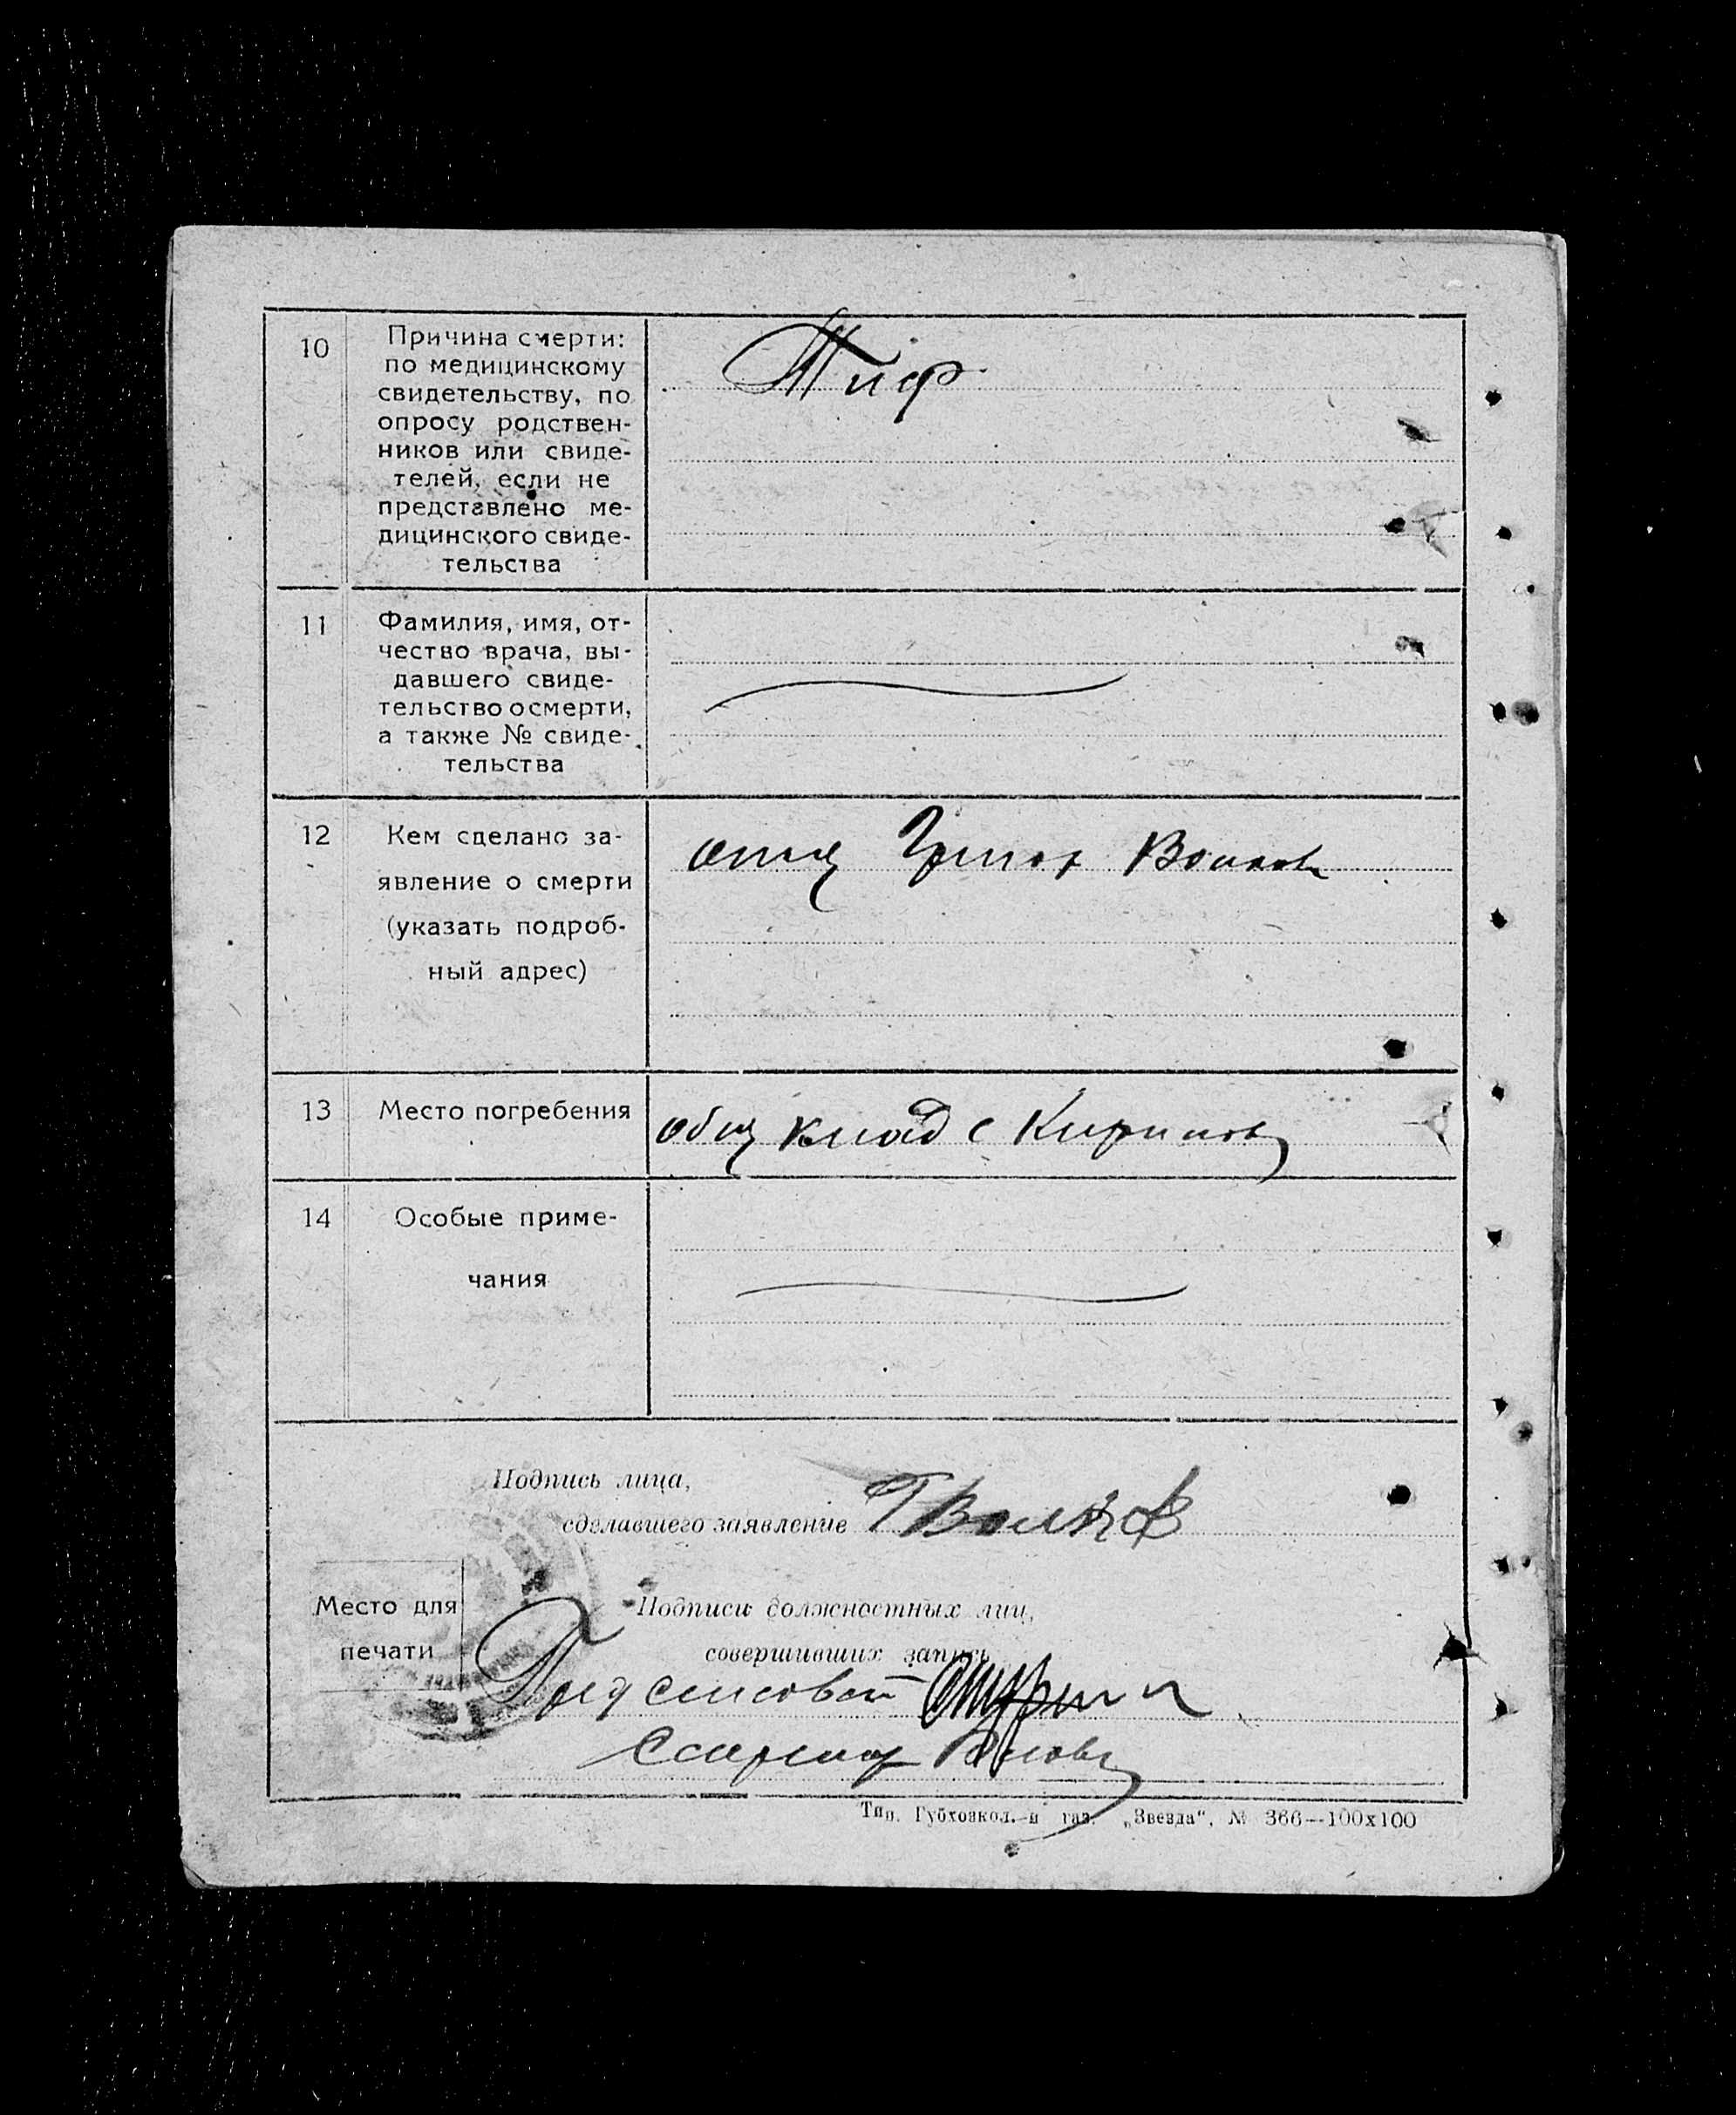 10
Причина смерти:
по медицинскому
свидетельству, по
опросу родствен-
ников или свиде-
телей, если не
представлено ме-
дицинского свиде-
тельства
Тиф
11
Фамилия, имя, от-
чество врача, вы-
давшего свиде-
тельство о смерти,
а также № свиде-
тельства
12
Кем сделано за-
явление о смерти
(указать подроб-
ный адрес)
отец Волков
13
Место погребения
общ клад с
14
Особые приме-
чания
Подпись лица,
сделавшего заявление Г Волков
Место для
печати
Подписи должностных лиц,
совершивших запись
Пред сельсовета
Секретар
Тип. Губтозкол.-и газ. „Звезда“, № 366—100х100